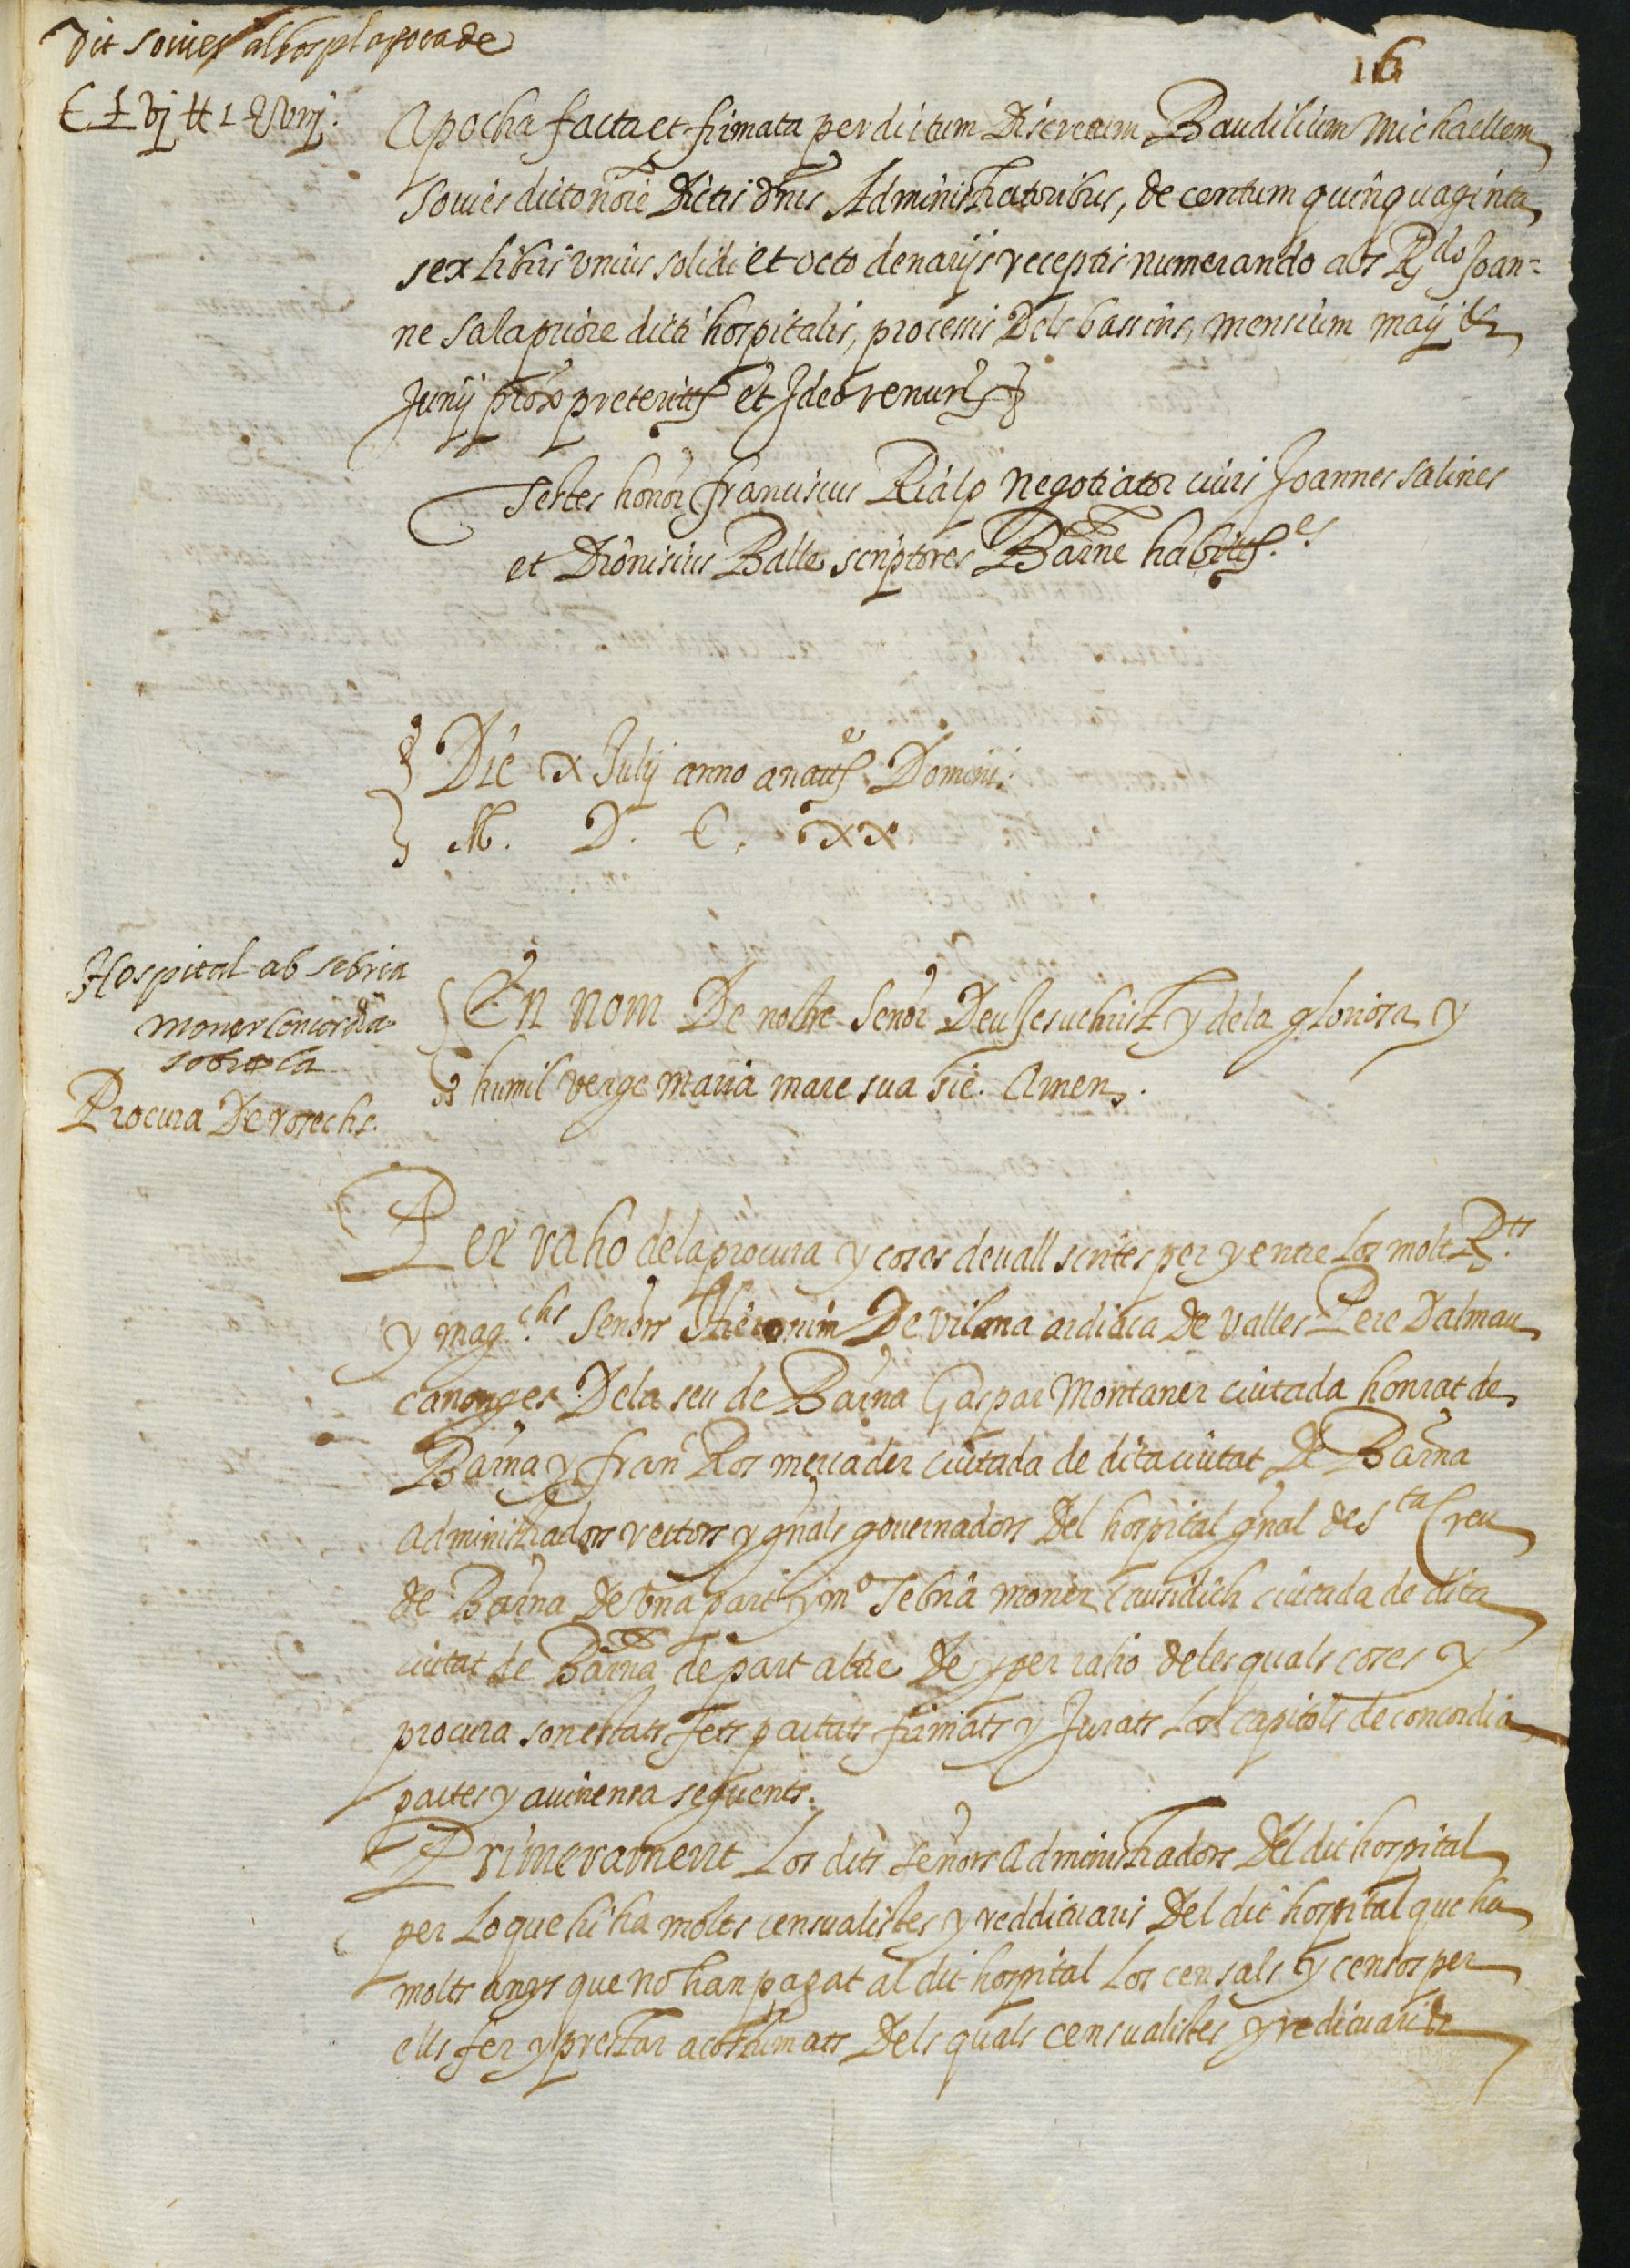 16
Dit Soviés al hospl apoca de
C L vj ll 1 s viij.
Apocha facta et firmata per dictum Discretum Baudilium Michaellem
Soviés dicto noíe Dictis dnis Administratoribus, de centum quinquaginta
sex libris unius solidi et octo denarijs receptis numerando abs Rdo Joan=
ne Sala priore dicti hospitalis, processis Dels bassins, mensium maij et
Junij proxo preteritis et Ideo renuns &
Testes honor franciscus Rialp negotiator civis Joannes Salines
et Dionisius Balle scriptores Barne habits.es
Die x Julij anno a nate Domini.
M. D. C. xx
Hospital ab Sebria
moner Concordia
sobre la
Procura De rosechs.
En nom De nostre Senor Deu Jesuchrist y de la gloriosa y
humil verge maria mare sua sie. Amen.
Per raho de la procura y coses devall scrites per y entre Los molt R.ts
y mag.chs Senors Hieronim De vilana ardiaca de valles Pere Dalmau
canonges De la seu de Barna Gaspar Montaner ciutada honrat de
Barna y fran Ros mercader ciutada de dita ciutat De Barna
administradors rectors y gnals governadors Del hospital gnal de Sta Creu
de Barna De una part y mo Sebria moner causidich ciutada de dita
ciutat de Barna de part altre De y per raho de les quals coses y
procura son estats fets pactats firmats y Jurats Los capitols de concordia
pactes y avinensa seguents.
Primerament Los dits senors administradors Del dit hospital
per Lo que hi ha molts censualistes y reddituaris Del dit hospital que ha
molts anys que no han pagat al dit hospital Los censals y censos per
ells fer y prestar acostumats Dels quals censualistes y redituaris